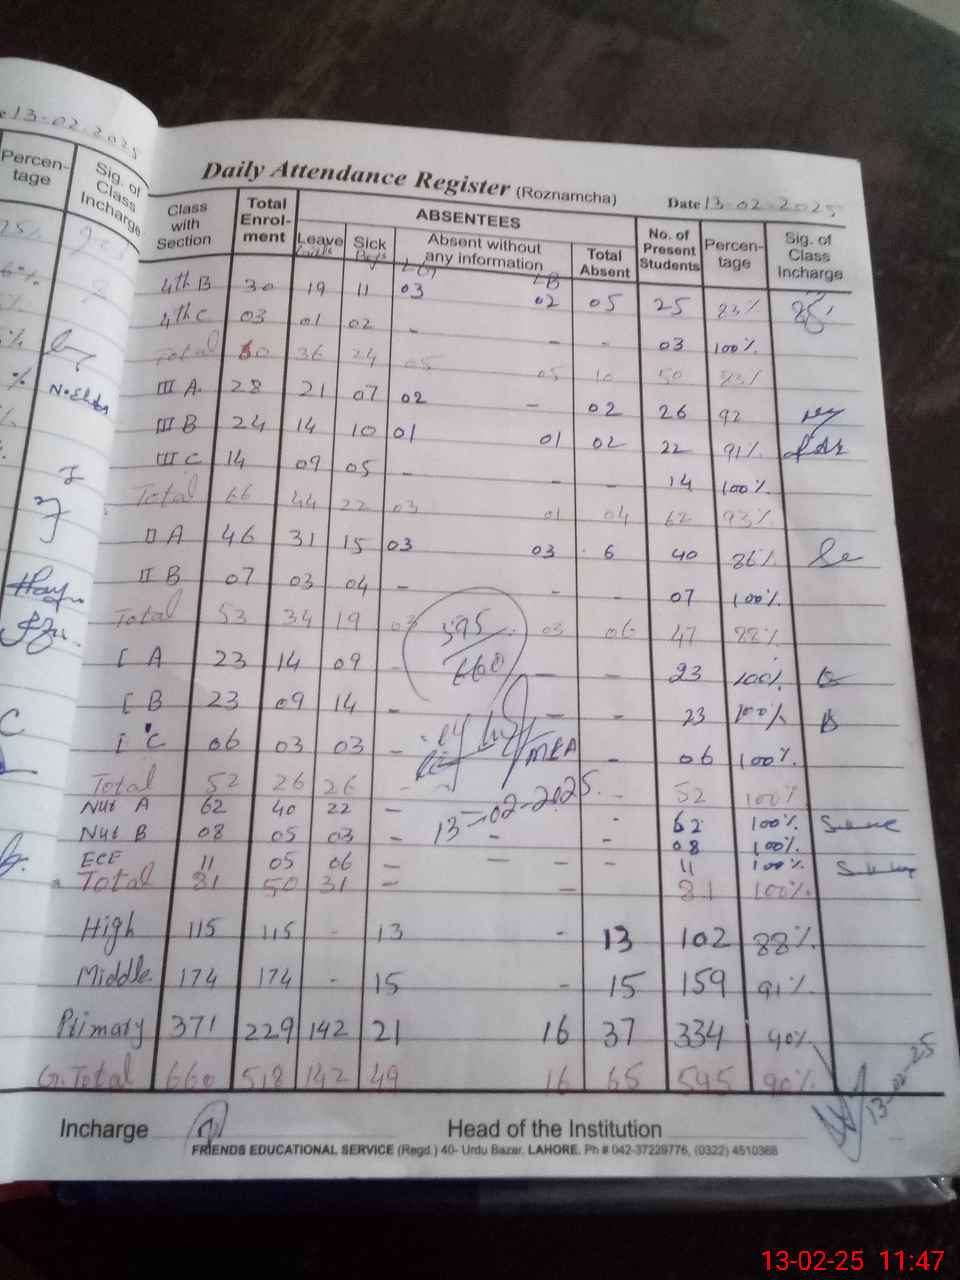 13-02-2025
Percen-tage Sig. of Class Incharge
Daily Attendance Register (Roznamcha) Date 13-02-2025
Class with Section Total Enrol-ment ABSENTEES No. of Present Students Percen-tage Sig. of Class Incharge
Leave Sick Absent without any information Total Absent
Girls Boys
4th B 30 19 11 03 02 05 25 83%
4th C 03 01 02 - - - 03 100%
Total 60 36 24 05 05 10 50 83%
III A. 28 21 07 02 - 02 26 92
III B 24 14 10 01 01 02 22 91%
III C 14 09 05 - - - 14 100%
Total 66 44 22 03 01 04 62 93%
II A 46 31 15 03 03 6 40 86%
II B 07 03 04 - - - 07 100%
Total 53 34 19 03 03 06 47 88%
595/660
I A 23 14 09 - - - 23 100%
I B 23 09 14 - - - 23 100%
I C 06 03 03 - - 06 100%
MEA
Total 52 26 26 - - 52 100%
13-02-2025.
Nur A 62 40 22 - - 62 100%
Nur B 08 05 03 - - - 08 100%
ECE 11 05 06 - - - - 11 100%
Total 81 50 31 - - 81 100%
High 115 115 - 13 - 13 102 88%
Middle 174 174 - 15 - 15 159 91%
Primary 371 229 142 21 16 37 334 90%
G.Total 660 518 142 49 16 65 595 90%
13-02-25
Incharge Head of the Institution
FRIENDS EDUCATIONAL SERVICE (Regd.) 40- Urdu Bazar, LAHORE. Ph # 042-37229776, (0322) 4510368
13-02-25 11:47